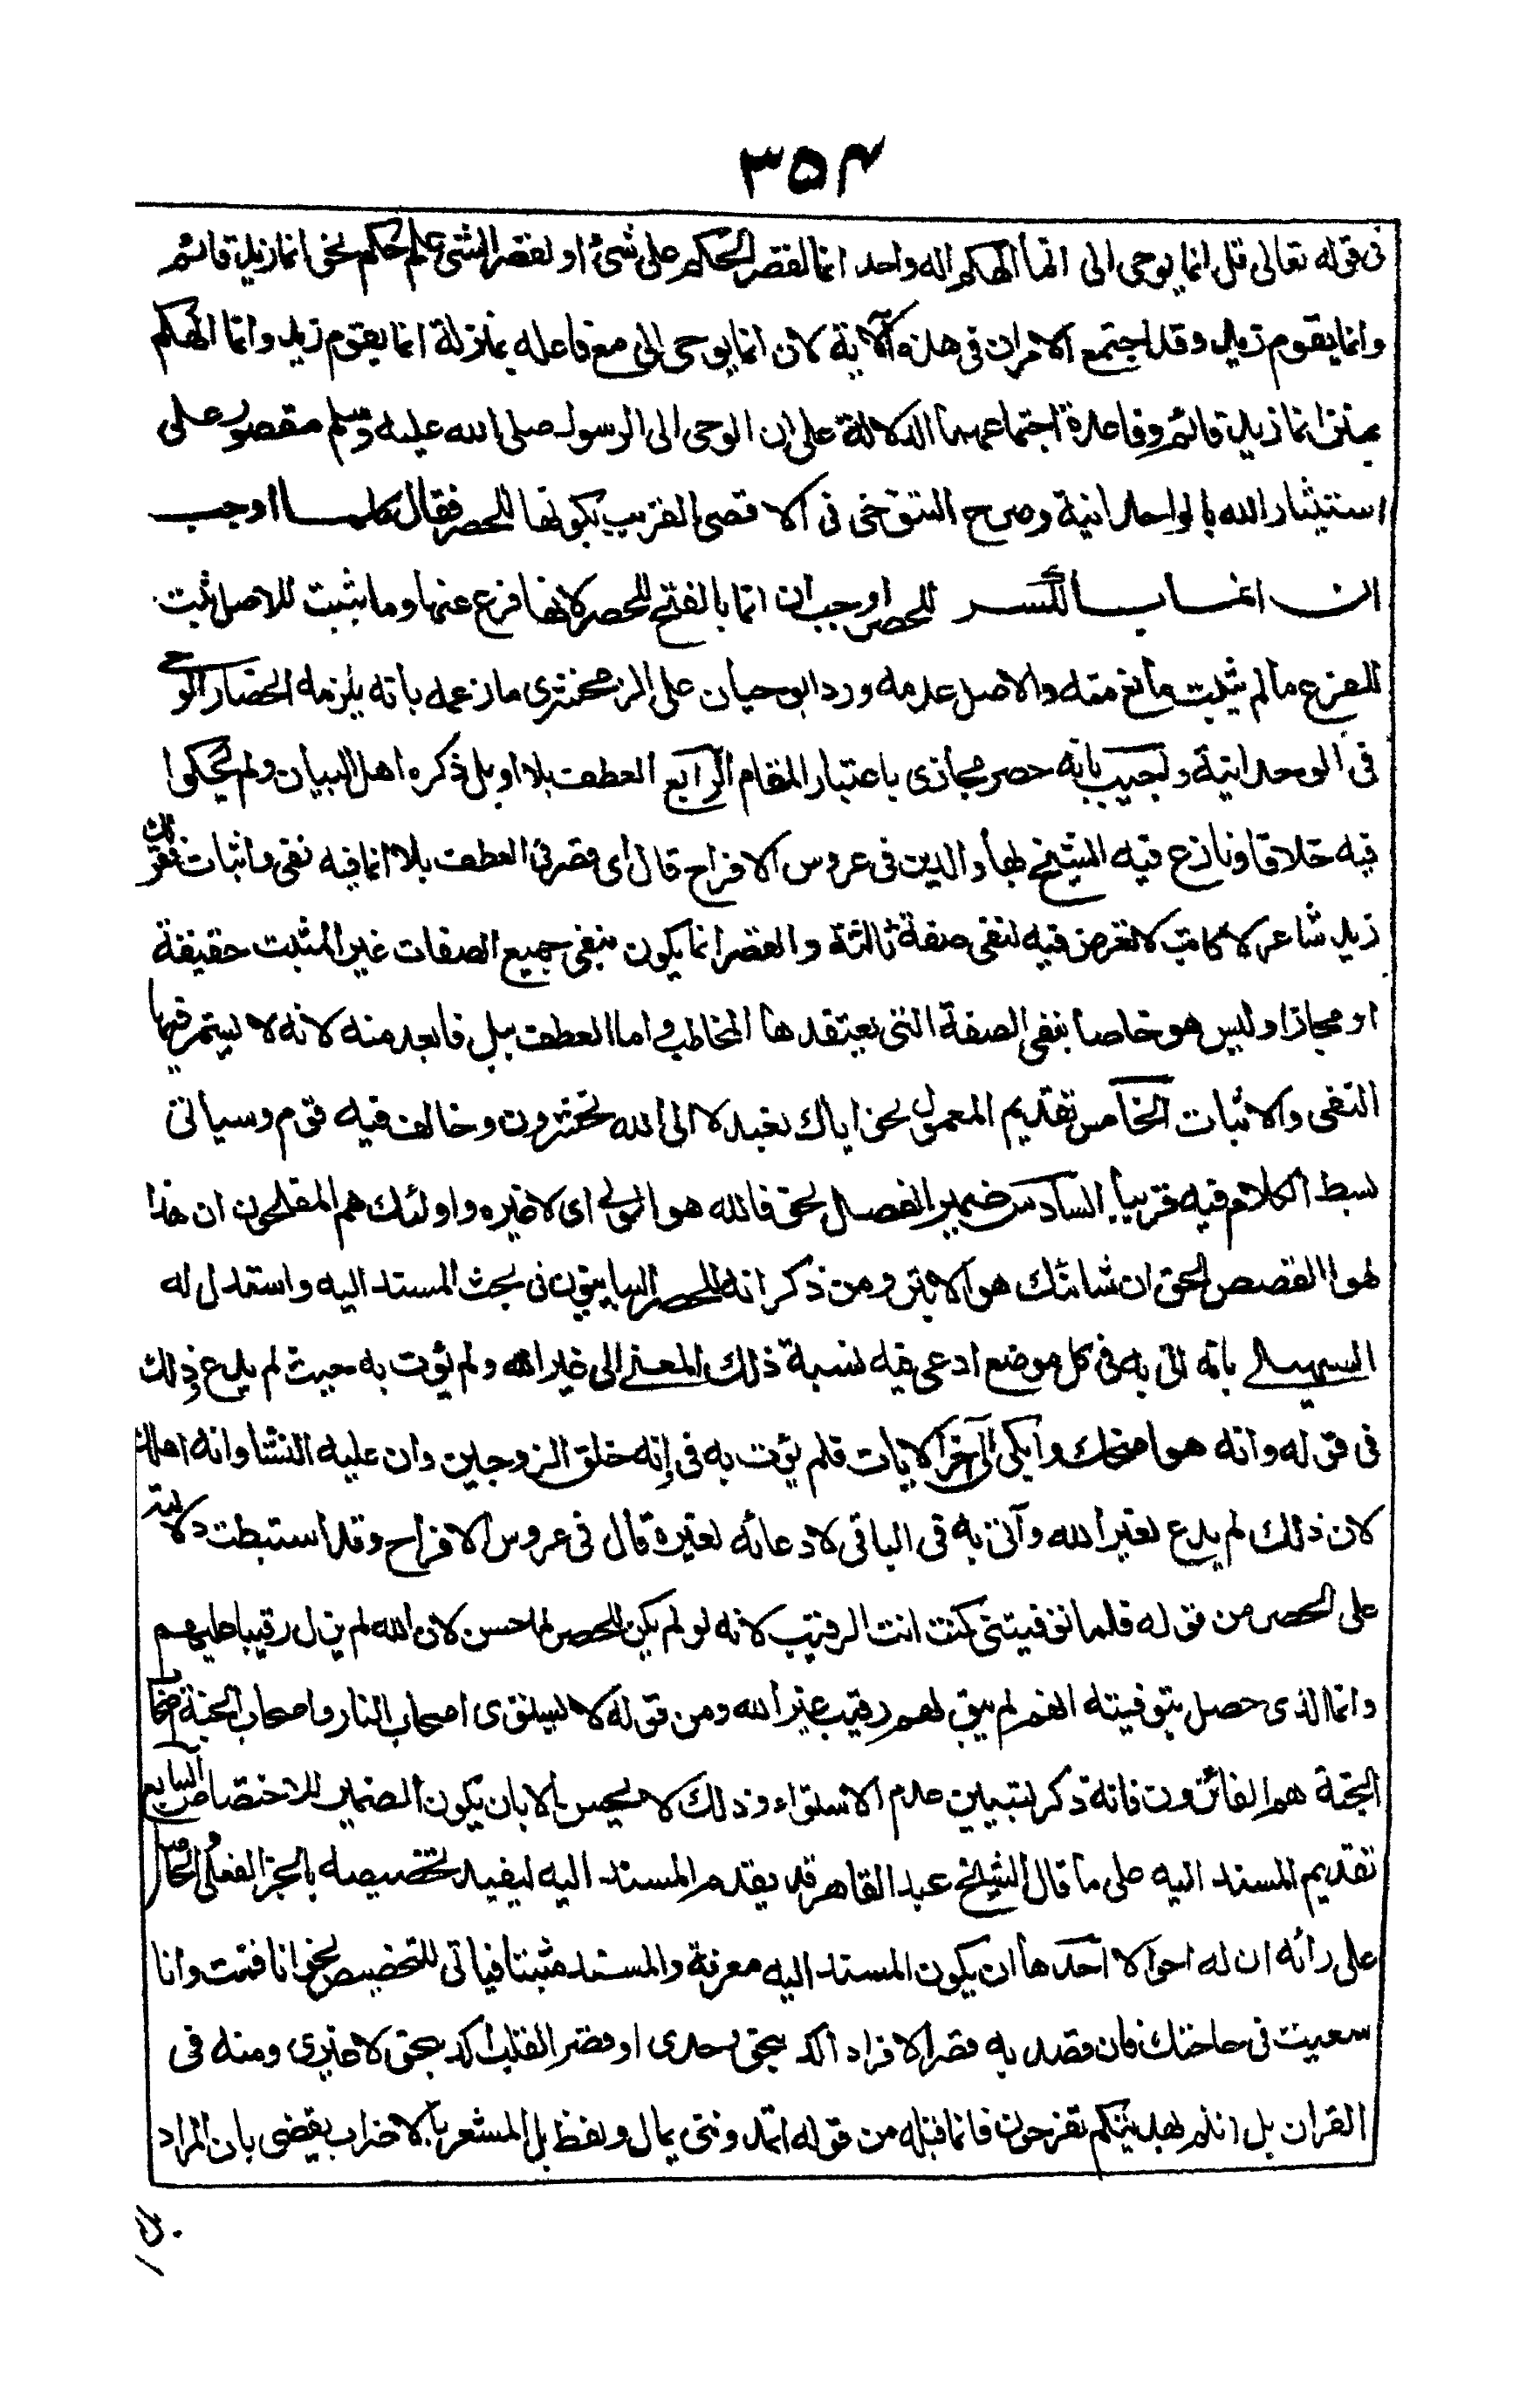 ٣٥٤
فى قوله تعالى قل انما يوحى الى انما الهكم اله واحد انما لقصر الحكم على شئ او لقصر الشئ على حكم نحو انما زيد قائم
وانما يقوم زيد وقد اجتمع الامران فى هذه الآية لان انما يوحى الى مع فاعله بمنزلة انما يقوم زيد وانما الهكم
بمنزلة انما زيد قائم وفائدة اجتماعهما الدلالة على ان الوحى الى الرسول صلى الله عليه وسلم مقصور على
استيثار الله بالواحدانية وصرح التنوخى فى الاقصى القريب بكونها للحصر فقال كلما اوجب
ان انما بالكسر للحصر اوجب ان انما بالفتح للحصر لانها فرع عنها وما ثبت للاصل ثبت
للفرع مالم يثبت مانع منه والاصل عدمه ورد ابو حيان على الزمخشرى ما زعمه بانه يلزمه انحصار الوحى
فى الوحدانية واجيب بانه حصر مجازى باعتبار المقام الرابع العطف بلا او بل ذكره اهل البيان ولم يحكوا
فيه خلافا ونازع فيه الشيخ بهاء الدين فى عروس الافراح قال اى قصر فى العطف بلا انما فيه نفى واثبات فقولك
زيد شاعر لا كاتب لا تعرض فيه لنفى صفة ثالثة والقصر انما يكون بنفى جميع الصفات غير المثبت حقيقة
او مجازا وليس هو خاصا بنفى الصفة التى يعتقدها المخاطب واما العطف ببل فابعد منه لانه لا يستمر فيها
النفى والاثبات الخامس تقديم المعمول نحو اياك نعبد لا الى الله تحشرون وخالف فيه قوم وسياتى
بسط الكلام فيه قريبا السادس ضمير الفصل نحو فالله هو الولى اى لا غيره واولئك هم المفلحون ان هذا
لهو القصص الحق ان شانئك هو الابتر ومن ذكر انه للحصر البيانيون فى بحث المسند اليه واستدل له
السهيلى بانه اتى به فى كل موضع ادعى فيه نسبة ذلك المعنى الى غير الله ولم يؤت به حيث لم يدع ذلك
فى قوله وانه هو اضحك وابكى الى آخر الايات فلم يؤت به فى وانه خلق الزوجين وان عليه النشا وانه اهلك
لان ذلك لم يدع لغير الله وأتى به فى الباقى لادعائه لغيره قال فى عروس الافراح وقد استنبطت دلالته
على الحصر من قوله فلما توفيتنى كنت انت الرقيب لانه لو لم يكن للحصر لما حسن لان الله لم يزل رقيبا عليهم
وانما الذى حصل بتوفيته انهم لم يبق لهم رقيب غير الله ومن قوله لا يستوى اصحاب النار واصحاب الجنة اصحاب
الجنة هم الفائزون فانه ذكر لتبيين عدم الاستواء وذلك لا يحسن الا بان يكون الضمير للاختصاص السابع
تقديم المسند اليه على ما قال الشيخ عبد القاهر قد يقدم المسند اليه ليفيد تخصيصه بالخبر الفعلى والحاصل
على رأئه ان له احوالا احدها ان يكون المسند اليه معرفة والمسند مثبتا فياتى للتخصيص نحو انا قمت وانا
سعيت فى حاجتك فان قصد به قصر الافراد اكد بنحو وحدى او قصر القلب اكد بنحو لا غيرى ومنه فى
القران بل انتم بهديتكم تفرحون فان ما قبله من قوله اتمدونن بمال ولفظ بل المشعر بالاضراب يقضى بان المراد